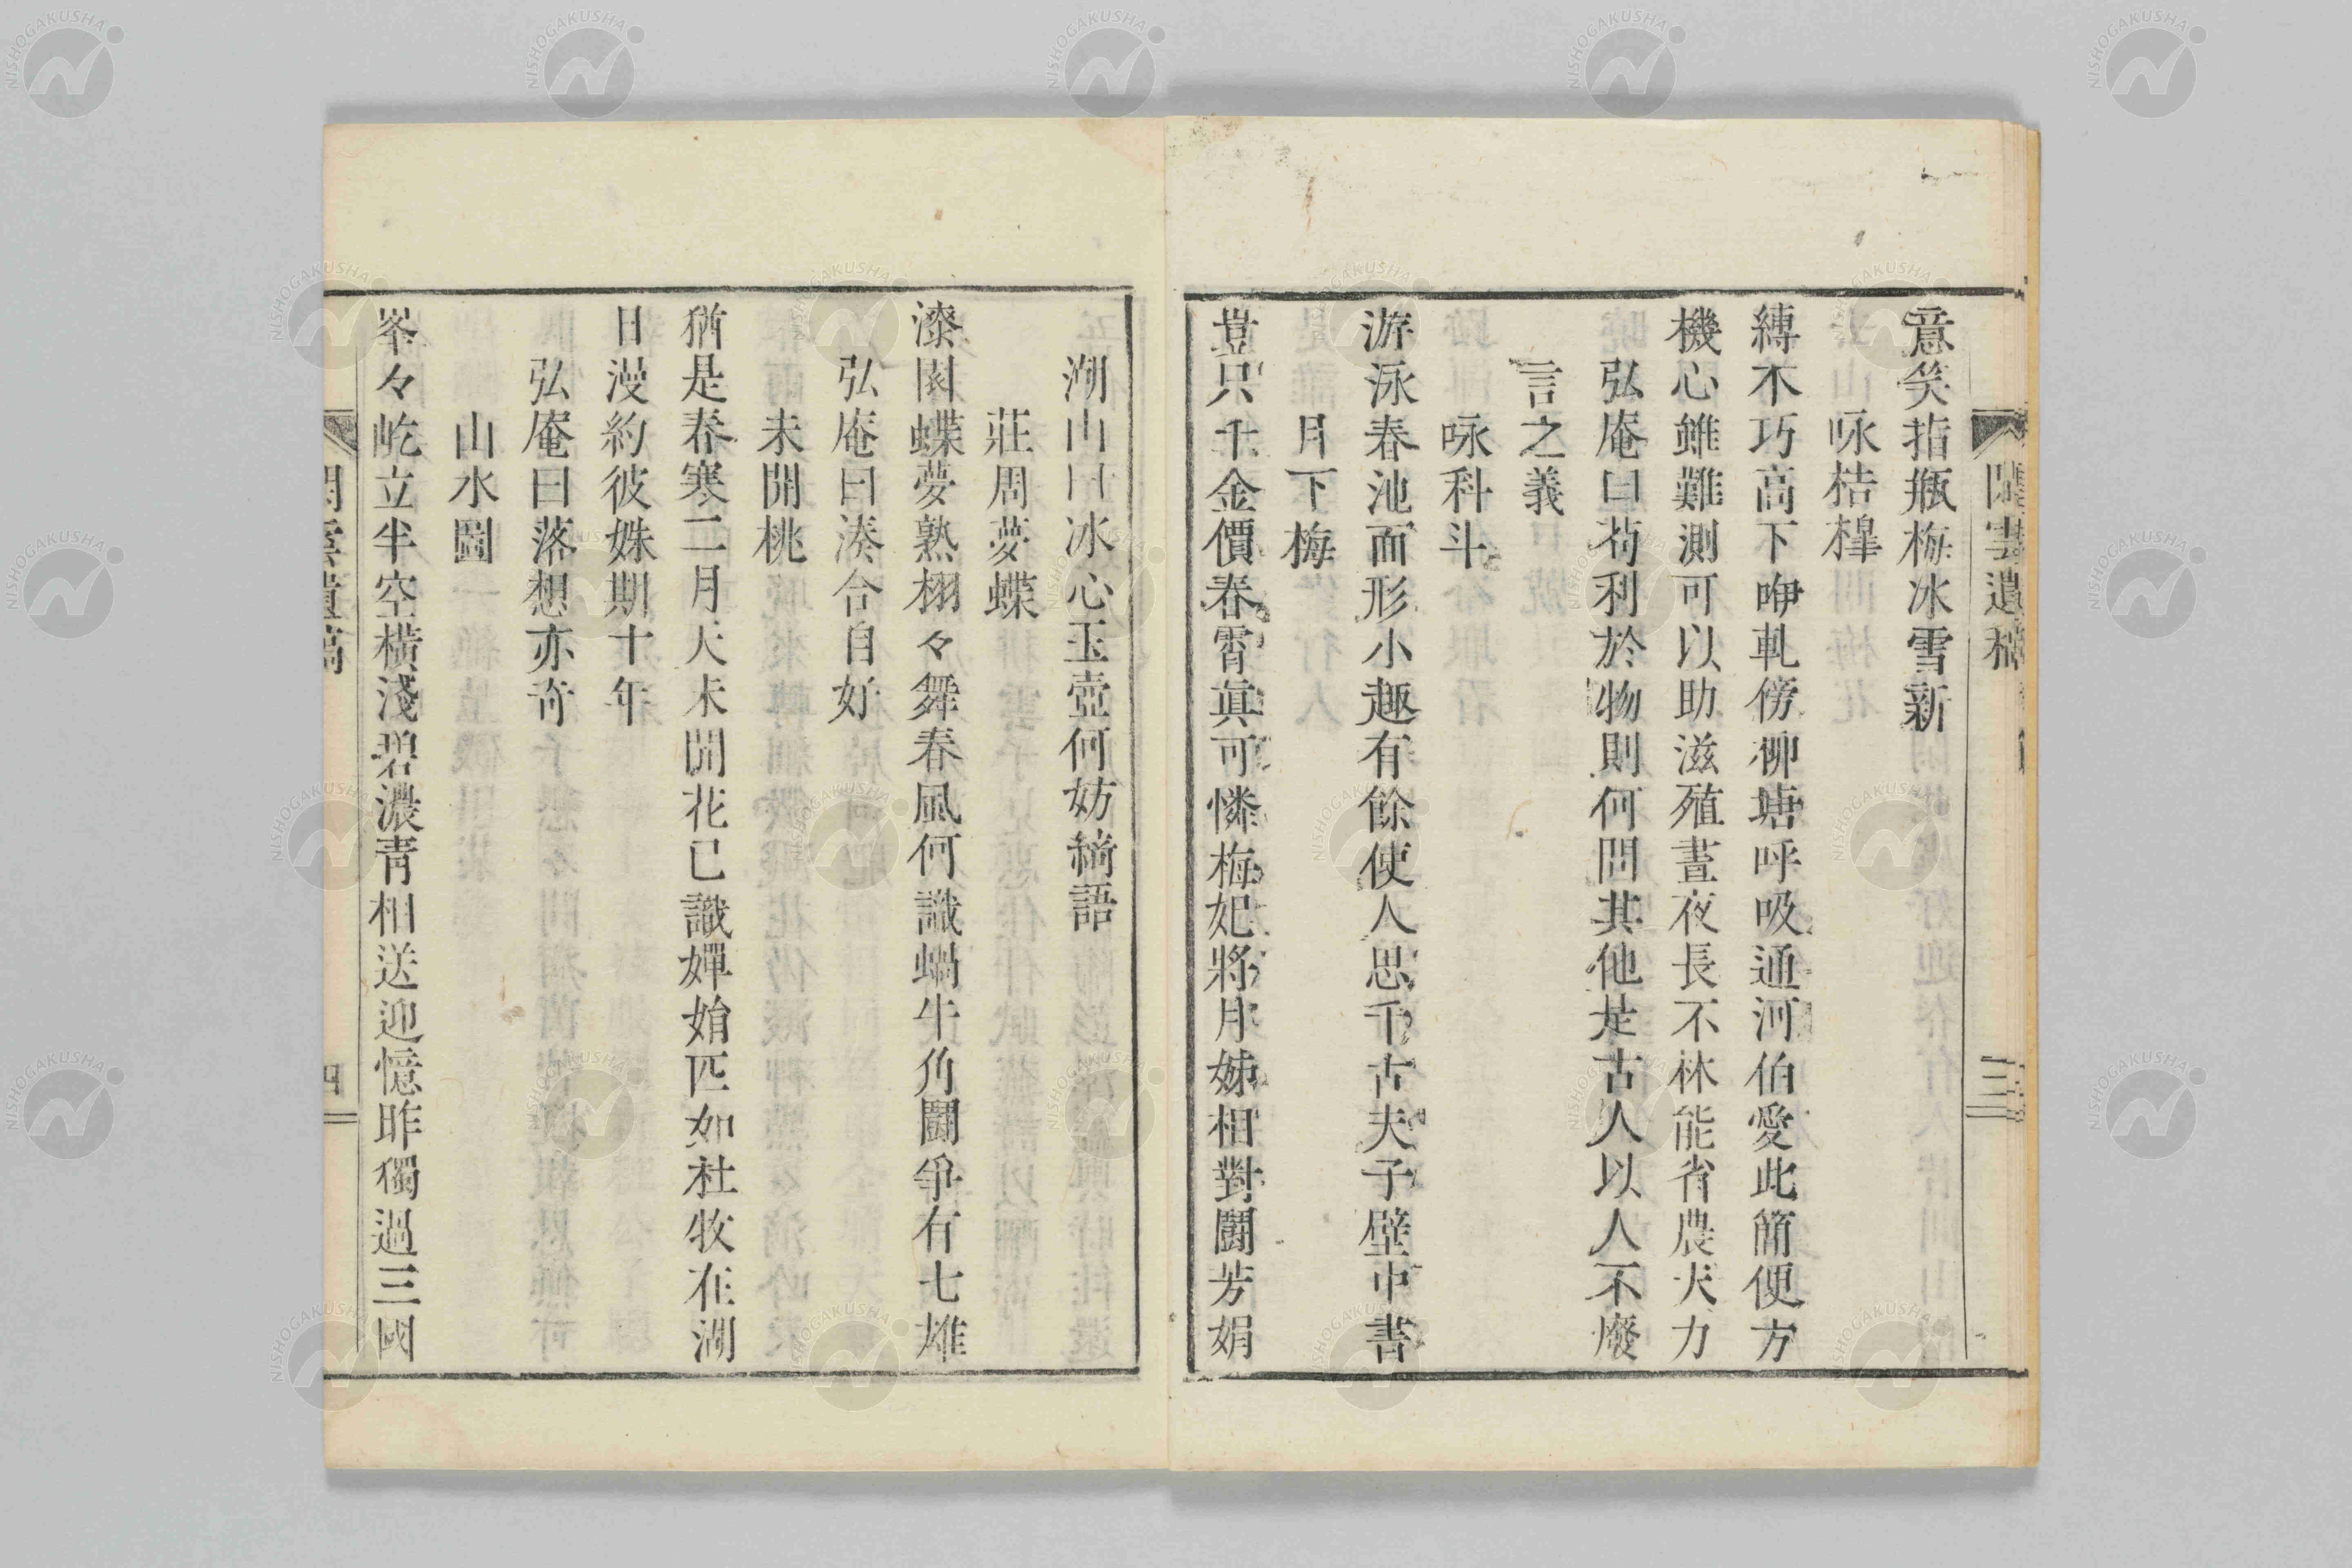 意笑指瓶梅冰雪新
咏桔槹
縛木巧高下咿軋傍柳塘呼吸通河伯愛此簡便方
機心雖難測可以助滋殖晝夜長不休能省農夫力
弘庵曰苟利於物則何問其他是古人以人不廢
言之義
咏科斗
游泳春池而形小趣有餘使人思千古夫子壁中書
月下梅
豈只千金價春宵眞可憐梅妃將月姊相對鬪芳娟
湖山曰冰心玉壺何妨綺語
莊周夢蝶
漆園蝶夢熟栩々舞春風何識蝸牛角鬪爭有七雄
弘庵曰湊合自好
未開桃
猶是春寒二月天未開花已識嬋娟匹如杜牧在湖
日漫約彼姝期十年
弘庵曰落想亦奇
山水圖
峯々屹立半空橫淺碧濃青相送迎憶昨獨過三國
閑雲遺稿
三
閑雲遺稿
四
NISHOGAKUSHA